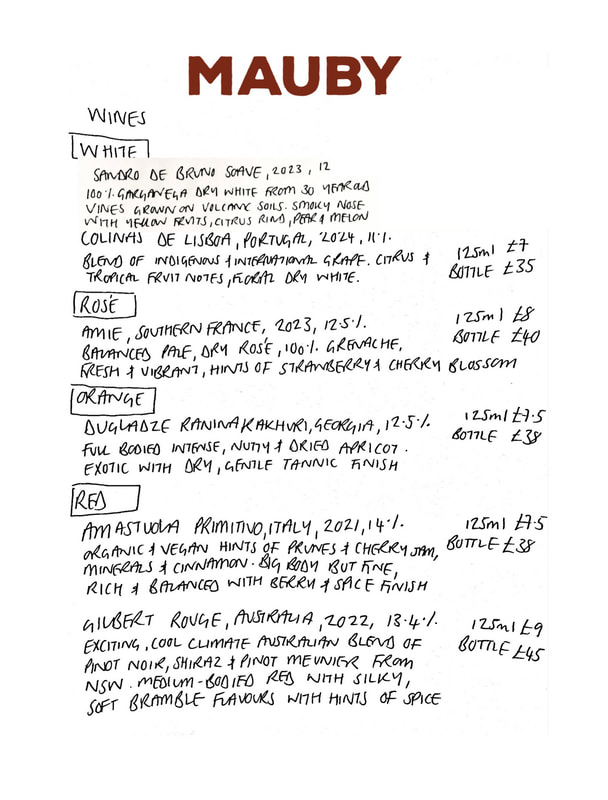 MAUBY
WINES
WHITE
SANDRO DE BRUNO SOAVE, 2023, 12
100% GARGANEGA DRY WHITE FROM 30 YEAR OLD
VINES GROWN ON VOLCANIC SOILS. SMOKY NOSE
WITH YELLOW FRUITS, CITRUS RIND, PEAR & MELON
COLINAS DE LISBOA, PORTUGAL, 2024, 11%.
BLEND OF INDIGENOUS & INTERNATIONAL GRAPE. CITRUS &
TROPICAL FRUIT NOTES, FLORAL DRY WHITE.
125ml £7
BOTTLE £35
ROSÉ
AMIE, SOUTHERN FRANCE, 2023, 12.5%.
BALANCED PALE, DRY ROSÉ, 100% GRENACHE,
FRESH & VIBRANT, HINTS OF STRAWBERRY & CHERRY BLOSSOM
125ml £8
BOTTLE £40
ORANGE
DUGLADZE RANINA KAKHURI, GEORGIA, 12.5%
FULL BODIED INTENSE, NUTTY & DRIED APRICOT.
EXOTIC WITH DRY, GENTLE TANNIC FINISH
125ml £7.5
BOTTLE £38
RED
AMASTUOLA PRIMITIVO, ITALY, 2021, 14%.
ORGANIC & VEGAN HINTS OF PRUNES & CHERRY JAM,
MINERALS & CINNAMON. BIG BODY BUT FINE,
RICH & BALANCED WITH BERRY & SPICE FINISH
125ml £7.5
BOTTLE £38
GILBERT ROUGE, AUSTRALIA, 2022, 13.4%
EXCITING, COOL CLIMATE AUSTRALIAN BLEND OF
PINOT NOIR, SHIRAZ & PINOT MEUNIER FROM
NSW. MEDIUM-BODIED RED WITH SILKY,
SOFT BRAMBLE FLAVOURS WITH HINTS OF SPICE
125ml £9
BOTTLE £45